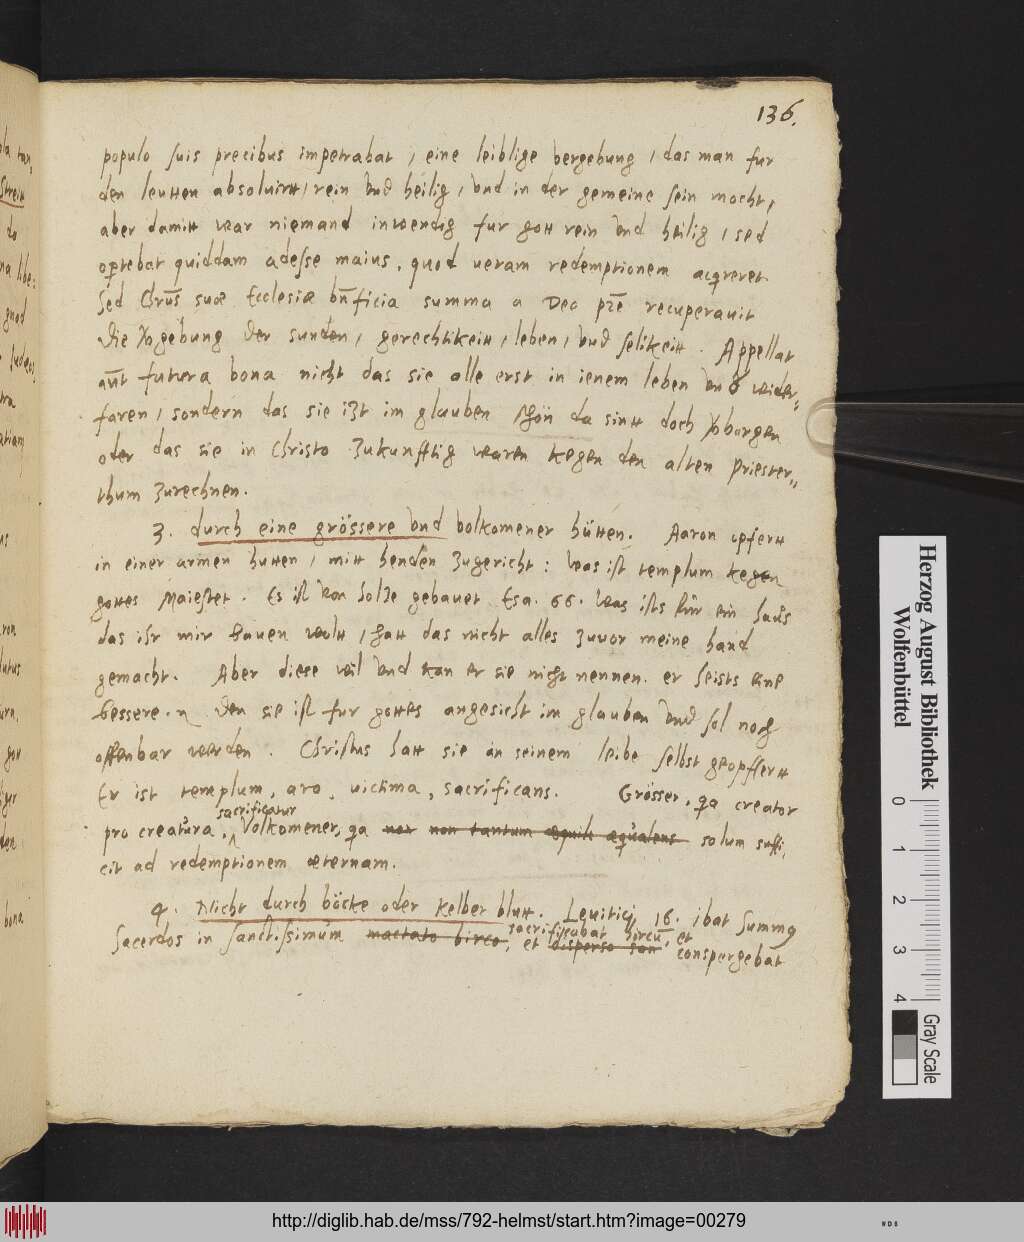 136.
populo suis precibus impetrabat, eine leiblige vergebung, das man fur
den leutten absoluirtt, rein vnd heilig, vnd in der gemeine sein mocht,
aber damitt war niemand inwendig fur gott rein vnd heilig, sed
optebat quiddam adesse maius, quod ueram redemptionem acqreret.
Sed Chrūs suæ Ecclesiæ bn̄ficia summa a Deo pr̄e recuperauit
Die Vogebung der sunden, gerechtikeitt, leben, vnd selikeitt. Appellat
aūt futura bona nicht das sie alle erst in ienem leben vnß wider„
faren, sondern das sie itzt im glauben schön da sintt doch Vborgen
oder das sie in Christo zukunfftig waren kegen den alten priester„
thum zurechnen.
3. durch eine grössere vnd volkomener hütten. Aaron opfertt
in einer armen hutten, mitt henden zugericht: was ist templum kegen
gottes Maiestet. Es ist von holze gebauet Esa. 66. was ists für ein haus
das ihr mir bauen wolt, hatt das nicht alles zuvor meine hand
gemacht. Aber diese wil vnd kan er sie nicht nennen. er heists eine
bessere. Den sie ist fur gottes angesicht im glauben vnd sol noch
offenbar werden. Christus hatt sie an seinem leibe selbst geopffertt
Er ist templum, ara, uictima, sacrificans. Grösser, qa creator
sacrificatur
pro creatura, Volkomener, qa nar non tantum æquale æqualens solum suffi„
cit ad redemptionem æternam.
4. Nicht durch böcke oder kelber blutt. Leuitici, 16. ibat summq
sacrificabat hircū, et
Sacerdos in sanctissimum mactato hirco, et disperso san conspergebat
Herzog August Bibliothek
Wolfenbüttel
0 1 2 3 4
Gray Scale
http://diglib.hab.de/mss/792-helmst/start.htm?image=00279